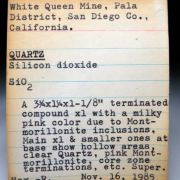 White Queen Mine, Pala
District, San Diego Co.,
California.
QUARTZ
Silicon dioxide
SiO2
A 3¾x1¼x1-1/8" terminated
compound xl with a milky
pink color due to Mont-
morillonite inclusions,
Main xl & smaller ones at
base show hollow areas,
clear Quartz, pink Mont-
morillonite, core zone
terminations, etc. Super.
Nov. 16, 1985